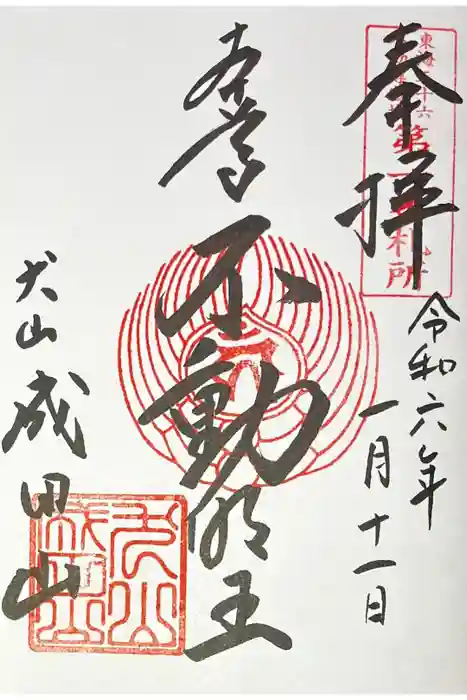 奉拝
東海三十六
不動尊
第一番札所
令和六年
一月十一日
本尊
不動明王
犬山
成田山